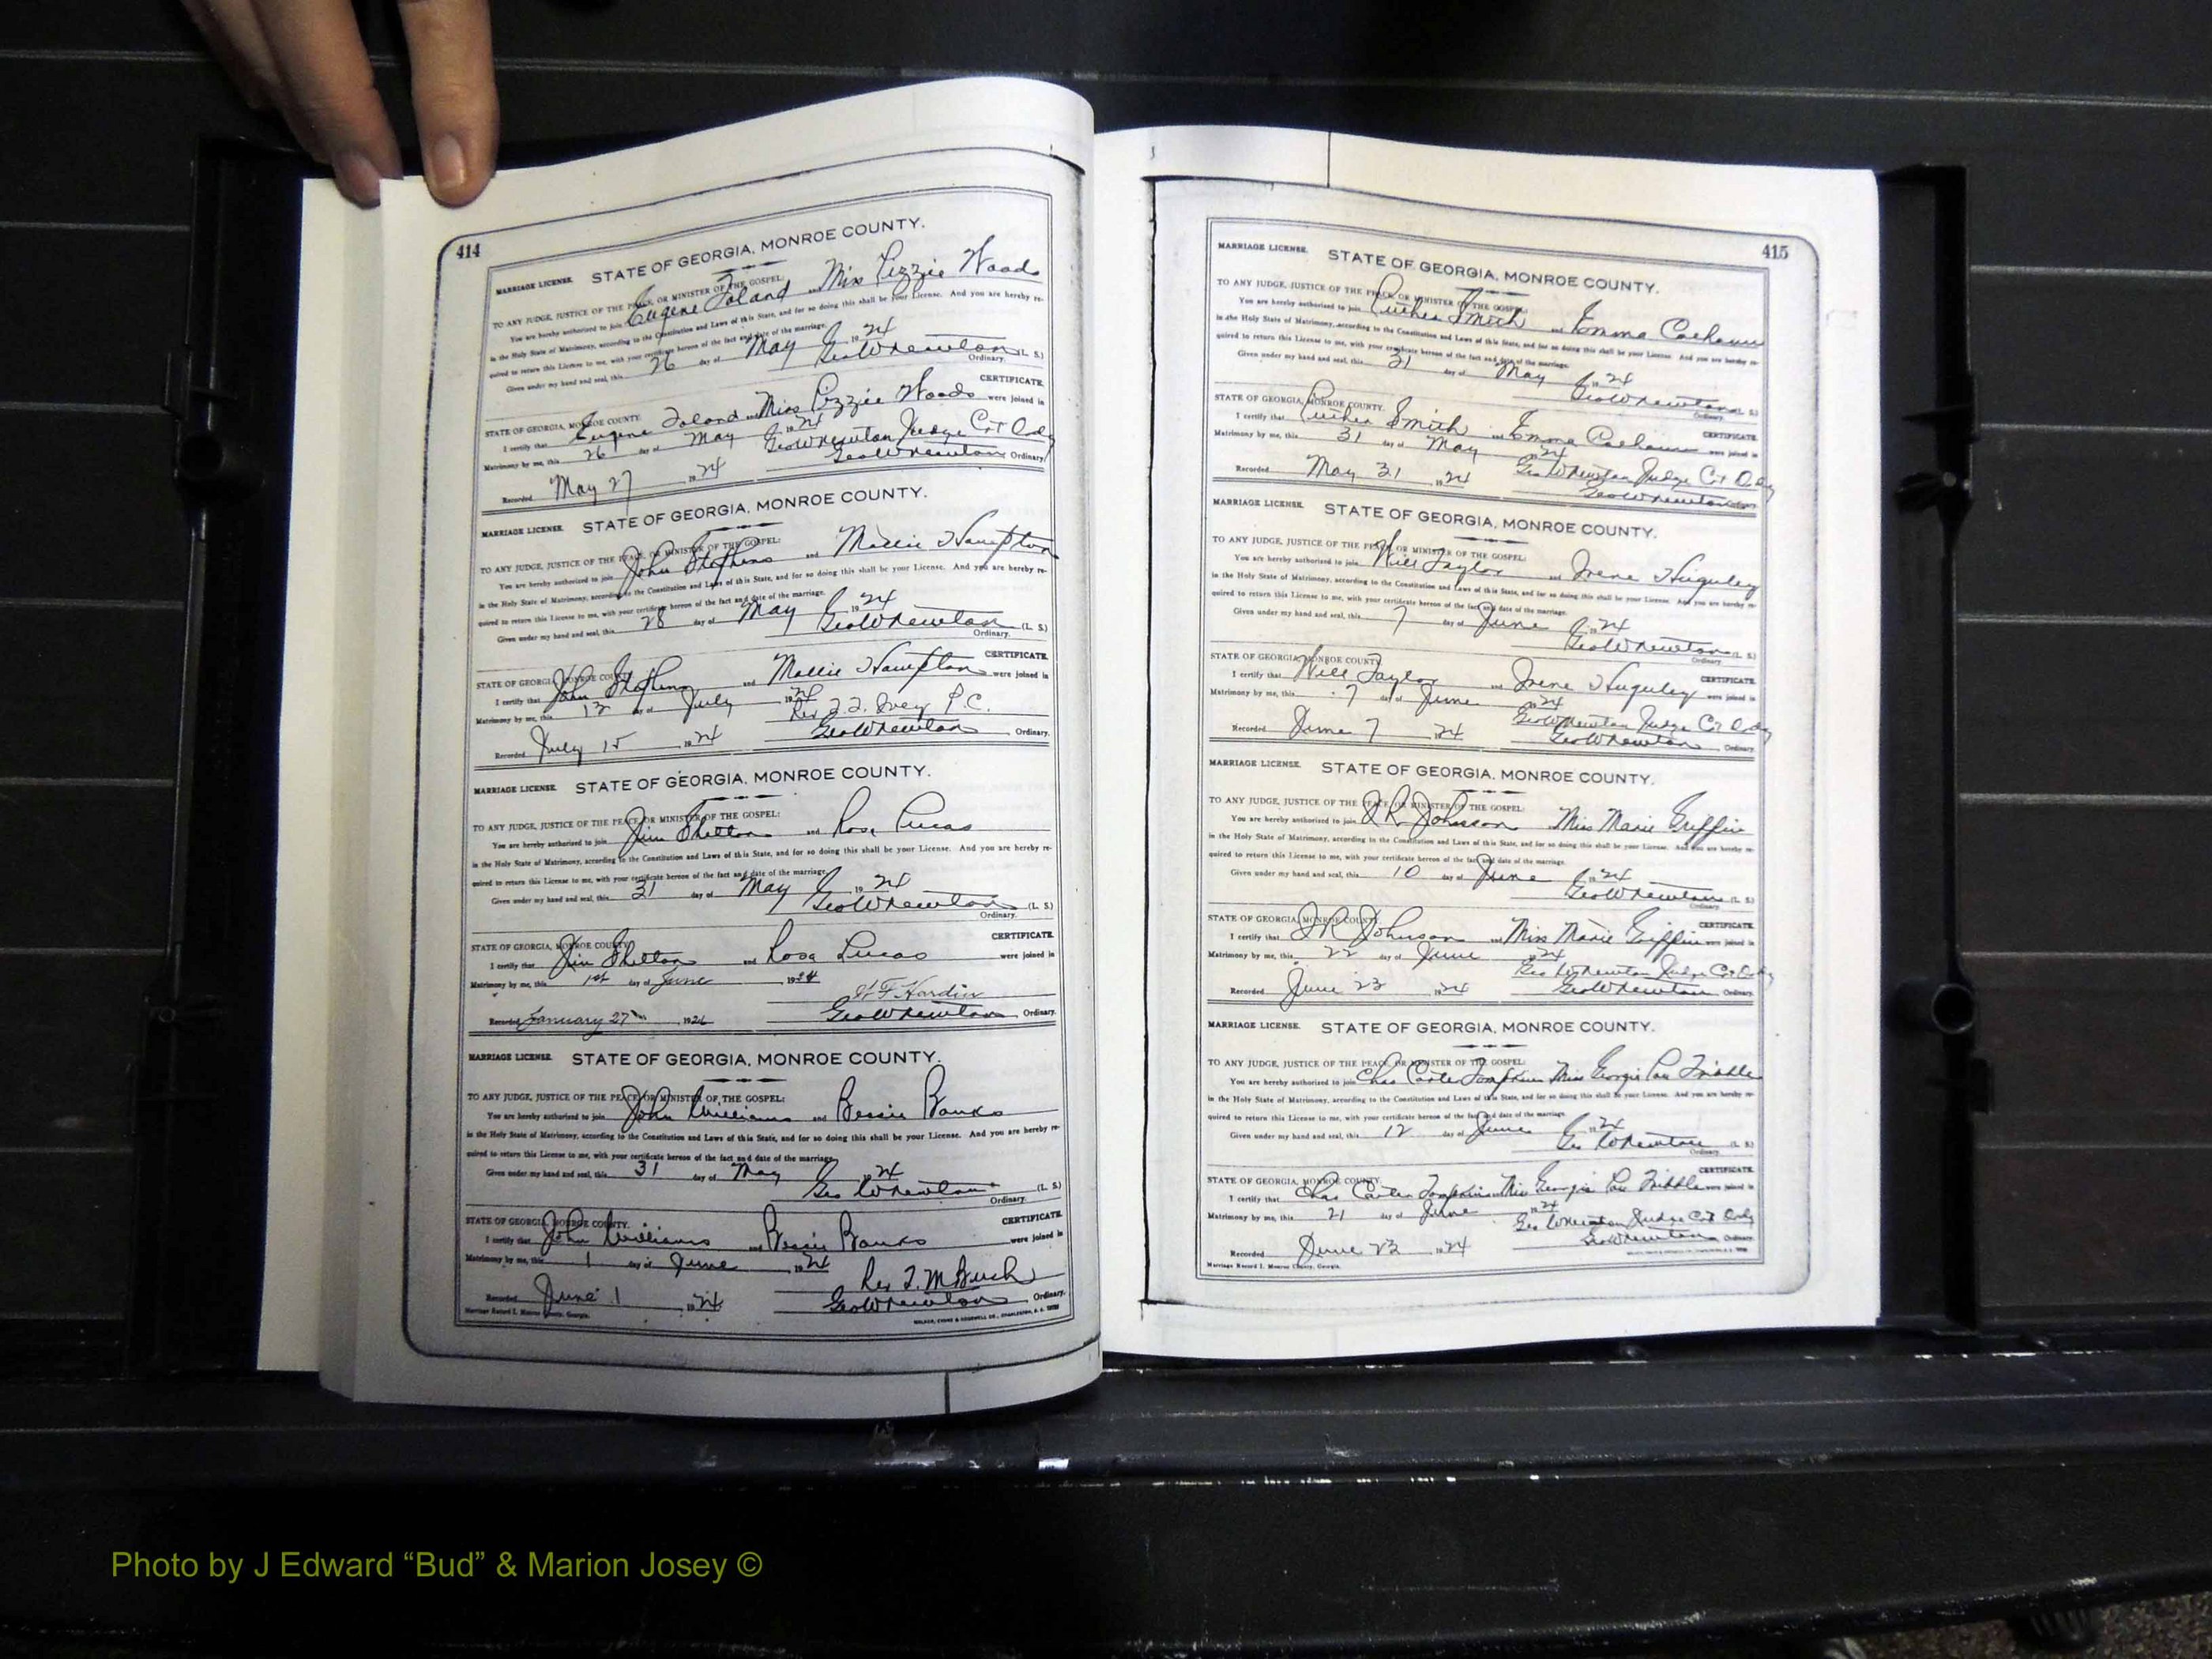 414
STATE OF GEORGIA, MONROE COUNTY.
MARRIAGE LICENSE.
TO ANY JUDGE, JUSTICE OF THE PEACE, OR MINISTER OF THE GOSPEL:
You are hereby authorized to join Eugene Toland and Miss Lizzie Woods
in the Holy State of Matrimony, according to the Constitution and Laws of this State, and for so doing this shall be your License. And you are hereby re-
quired to return this License to me, with your certificate hereon of the fact and date of the marriage.
Given under my hand and seal, this 26 day of May 1924
Geo W Newton (L. S.)
Ordinary.
CERTIFICATE.
STATE OF GEORGIA, MONROE COUNTY.
I certify that Eugene Toland and Miss Lizzie Woods were joined in
Matrimony by me, this 26 day of May 1924
Geo W Newton Judge Crt Ordy
Recorded May 27 1924 Geo W Newton Ordinary.
MARRIAGE LICENSE. STATE OF GEORGIA, MONROE COUNTY.
TO ANY JUDGE, JUSTICE OF THE PEACE, OR MINISTER OF THE GOSPEL:
You are hereby authorized to join John Stephens and Mollie Hampton
in the Holy State of Matrimony, according to the Constitution and Laws of this State, and for so doing this shall be your License. And you are hereby re-
quired to return this License to me, with your certificate hereon of the fact and date of the marriage.
Given under my hand and seal, this 28 day of May 1924
Geo W Newton (L. S.)
Ordinary.
CERTIFICATE.
STATE OF GEORGIA, MONROE COUNTY.
I certify that John Stephens and Mollie Hampton were joined in
Matrimony by me, this 12 day of July 1924
Rev Ivey P.C.
Recorded July 15 1924 Geo W Newton Ordinary.
MARRIAGE LICENSE. STATE OF GEORGIA, MONROE COUNTY.
TO ANY JUDGE, JUSTICE OF THE PEACE, OR MINISTER OF THE GOSPEL:
You are hereby authorized to join Jim Shelton and Rosa Lucas
in the Holy State of Matrimony, according to the Constitution and Laws of this State, and for so doing this shall be your License. And you are hereby re-
quired to return this License to me, with your certificate hereon of the fact and date of the marriage.
Given under my hand and seal, this 31 day of May 1924
Geo W Newton (L. S.)
Ordinary.
CERTIFICATE.
STATE OF GEORGIA, MONROE COUNTY.
I certify that Jim Shelton and Rosa Lucas were joined in
Matrimony by me, this 1st day of June 1924
Hardin
Recorded January 27 Geo W Newton Ordinary.
MARRIAGE LICENSE. STATE OF GEORGIA, MONROE COUNTY.
TO ANY JUDGE, JUSTICE OF THE PEACE, OR MINISTER OF THE GOSPEL:
You are hereby authorized to join John Williams and Bessie Banks
in the Holy State of Matrimony, according to the Constitution and Laws of this State, and for so doing this shall be your License. And you are hereby re-
quired to return this License to me, with your certificate hereon of the fact and date of the marriage.
Given under my hand and seal, this 31 day of May 1924
Geo W Newton (L. S.)
Ordinary.
CERTIFICATE.
STATE OF GEORGIA, MONROE COUNTY.
I certify that John Williams and Bessie Banks were joined in
Matrimony by me, this 1 day of June 1924
Rev T. M Bush
Recorded June 1 1924 Geo W Newton Ordinary.
Marriage Record I. Monroe County, Georgia.
WALKER, EVANS & COGSWELL CO., CHARLESTON, S. C.
415
MARRIAGE LICENSE. STATE OF GEORGIA, MONROE COUNTY.
TO ANY JUDGE, JUSTICE OF THE PEACE, OR MINISTER OF THE GOSPEL:
You are hereby authorized to join Luther Smith and Emma Calhoun
in the Holy State of Matrimony, according to the Constitution and Laws of this State, and for so doing this shall be your License. And you are hereby re-
quired to return this License to me, with your certificate hereon of the fact and date of the marriage.
Given under my hand and seal, this 31 day of May 1924
Geo W Newton (L. S.)
Ordinary.
CERTIFICATE.
STATE OF GEORGIA, MONROE COUNTY.
I certify that Luther Smith and Emma Calhoun were joined in
Matrimony by me, this 31 day of May 1924
Geo W Newton Judge Crt Ordy
Recorded May 31 1924 Geo W Newton Ordinary.
MARRIAGE LICENSE. STATE OF GEORGIA, MONROE COUNTY.
TO ANY JUDGE, JUSTICE OF THE PEACE, OR MINISTER OF THE GOSPEL:
You are hereby authorized to join Will Taylor and Irene Huguley
in the Holy State of Matrimony, according to the Constitution and Laws of this State, and for so doing this shall be your License. And you are hereby re-
quired to return this License to me, with your certificate hereon of the fact and date of the marriage.
Given under my hand and seal, this 7 day of June 1924
Geo W Newton (L. S.)
Ordinary.
STATE OF GEORGIA, MONROE COUNTY.
CERTIFICATE.
I certify that Will Taylor and Irene Huguley were joined in
Matrimony by me, this 7 day of June 1924
Geo W Newton Judge Crt Ordy
Recorded June 7 1924 Geo W Newton Ordinary.
MARRIAGE LICENSE. STATE OF GEORGIA, MONROE COUNTY.
TO ANY JUDGE, JUSTICE OF THE PEACE, OR MINISTER OF THE GOSPEL:
You are hereby authorized to join J R Johnson Miss Marie Griffin
in the Holy State of Matrimony, according to the Constitution and Laws of this State, and for so doing this shall be your License. And you are hereby re-
quired to return this License to me, with your certificate hereon of the fact and date of the marriage.
Given under my hand and seal, this 10 day of June 1924
Geo W Newton (L. S.)
Ordinary.
STATE OF GEORGIA, MONROE COUNTY.
CERTIFICATE.
I certify that J R Johnson and Miss Marie Griffin were joined in
Matrimony by me, this 22 day of June 1924
Geo W Newton Judge Crt Ordy
Recorded June 23 1924 Geo W Newton Ordinary.
MARRIAGE LICENSE. STATE OF GEORGIA, MONROE COUNTY.
TO ANY JUDGE, JUSTICE OF THE PEACE, OR MINISTER OF THE GOSPEL:
You are hereby authorized to join Chas Carter Tompkins Miss Georgia Lou Friddle
in the Holy State of Matrimony, according to the Constitution and Laws of this State, and for so doing this shall be your License. And you are hereby re-
quired to return this License to me, with your certificate hereon of the fact and date of the marriage.
Given under my hand and seal, this 12 day of June 1924
Geo W Newton (L. S.)
Ordinary.
CERTIFICATE.
STATE OF GEORGIA, MONROE COUNTY.
I certify that Chas Carter Tompkins Miss Georgia Lou Friddle were joined in
Matrimony by me, this 21 day of June 1924
Geo W Newton Judge Crt Ordy
Recorded June 23 1924 Geo W Newton Ordinary.
Marriage Record I. Monroe County, Georgia.
Photo by J Edward “Bud” & Marion Josey ©